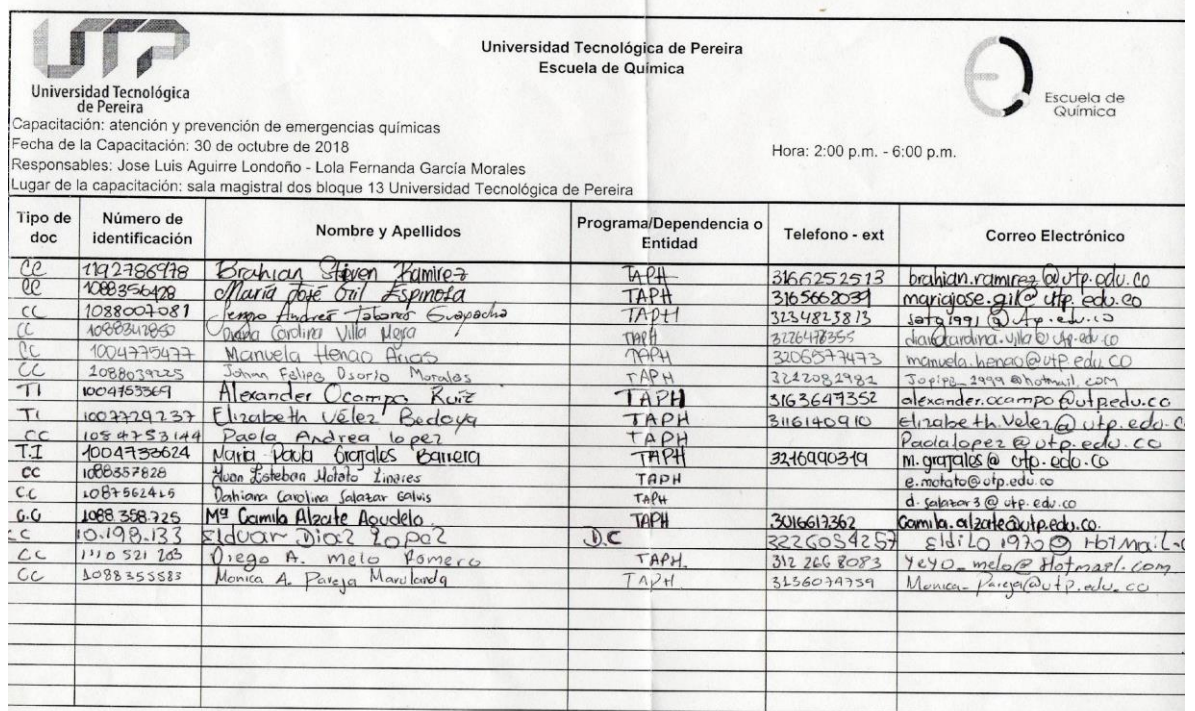 Universidad Tecnológica de Pereira
Escuela de Química
UTP
Universidad Tecnológica
de Pereira
Escuela de
Química
Capacitación: atención y prevención de emergencias químicas
Fecha de la Capacitación: 30 de octubre de 2018
Hora: 2:00 p.m. - 6:00 p.m.
Responsables: Jose Luis Aguirre Londoño - Lola Fernanda García Morales
Lugar de la capacitación: sala magistral dos bloque 13 Universidad Tecnológica de Pereira
Tipo de doc Número de identificación Nombre y Apellidos Programa/Dependencia o Entidad Telefono - ext Correo Electrónico
CC 1192786978 Brahian Stiven Ramirez TAPH 3166252513 brahian.ramirez@utp.edu.co
CC 1088356428 María José Gil Espinosa TAPH 3165662039 mariajose.gil@utp.edu.co
CC 1088007081 Andres Tabares Guapacha TAPH 3234823813 sata1991@utp.edu.co
CC 1088342850 Carolina Villa TAPH 3226478355
CC 1004775477 Manuela Henao Arias TAPH 3206577473 manuela.henao@utp.edu.co
CC 1088039225 Johan Felipe Osorio Morales TAPH 3212082982 Jopipe_1999@hotmail.com
TI 1004753369 Alexander Ocampo Ruiz TAPH 3163647352 alexander.ocampo@utp.edu.co
TI 1007729237 Elizabeth Vélez Bedoya TAPH 3116140910 Elizabeth.Velez@utp.edu.c
CC 1054753144 Paola Andrea lopez TAPH Paolalopez@utp.edu.co
T.I 1004733624 María Paula Grajales Barrera TAPH 3216990319 m.grajales@utp.edu.co
CC 1088357828 Juan Esteban Motato Linares TAPH e.motato@utp.edu.co
C.C 1087562415 Dahiana Carolina Salazar Galvis TAPH d.salazar3@utp.edu.co
C.C 1088.358.725 Mª Camila Alzate Agudelo TAPH 3016617362 Camila.alzate@utp.edu.co.
CC 10.198.133 Elduar Diaz Lopez D.C 3226034257 Eldilo1970@Hotmail.c
C.C 1110 521 203 Diego A. melo Romero TAPH. 312 266 8083 Yeyo_melo@Hotmail.com
CC 1088353583 Monica A. Pareja Marulanda TAPH 3136074759 Monica-Pareja@utp.edu.co